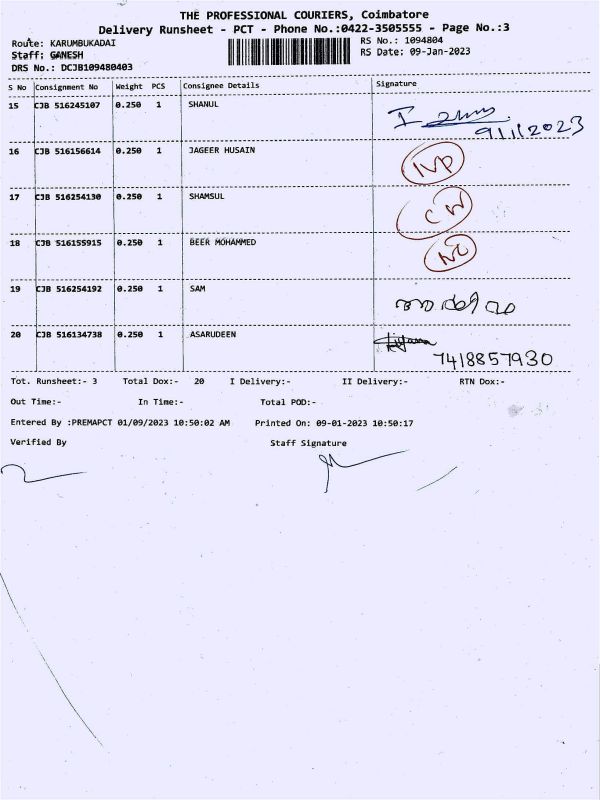 THE PROFESSIONAL COURIERS, Coimbatore
Delivery Runsheet - PCT - Phone No.:0422-3505555 - Page No.:3
Route: KARUMBUKADAI
RS No.: 1094804
Staff: GANESH
RS Date: 09-Jan-2023
DRS No.: DCJB109480403
S No Consignment No Weight PCS Consignee Details Signature
15 CJB 516245107 0.250 1 SHANUL
9/1/2023
16 CJB 516156614 0.250 1 JAGEER HUSAIN
17 CJB 516254130 0.250 1 SHAMSUL
18 CJB 516155915 0.250 1 BEER MOHAMMED
19 CJB 516254192 0.250 1 SAM
20 CJB 516134738 0.250 1 ASARUDEEN
7418857930
Tot. Runsheet:- 3 Total Dox:- 20 I Delivery:- II Delivery:- RTN Dox:-
Out Time:- In Time:- Total POD:-
Entered By :PREMAPCT 01/09/2023 10:50:02 AM Printed On: 09-01-2023 10:50:17
Verified By Staff Signature